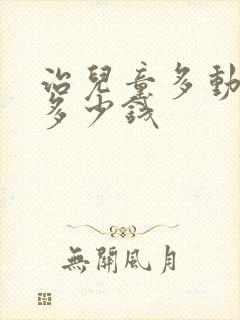 治兒童多動
多少錢
無關風月